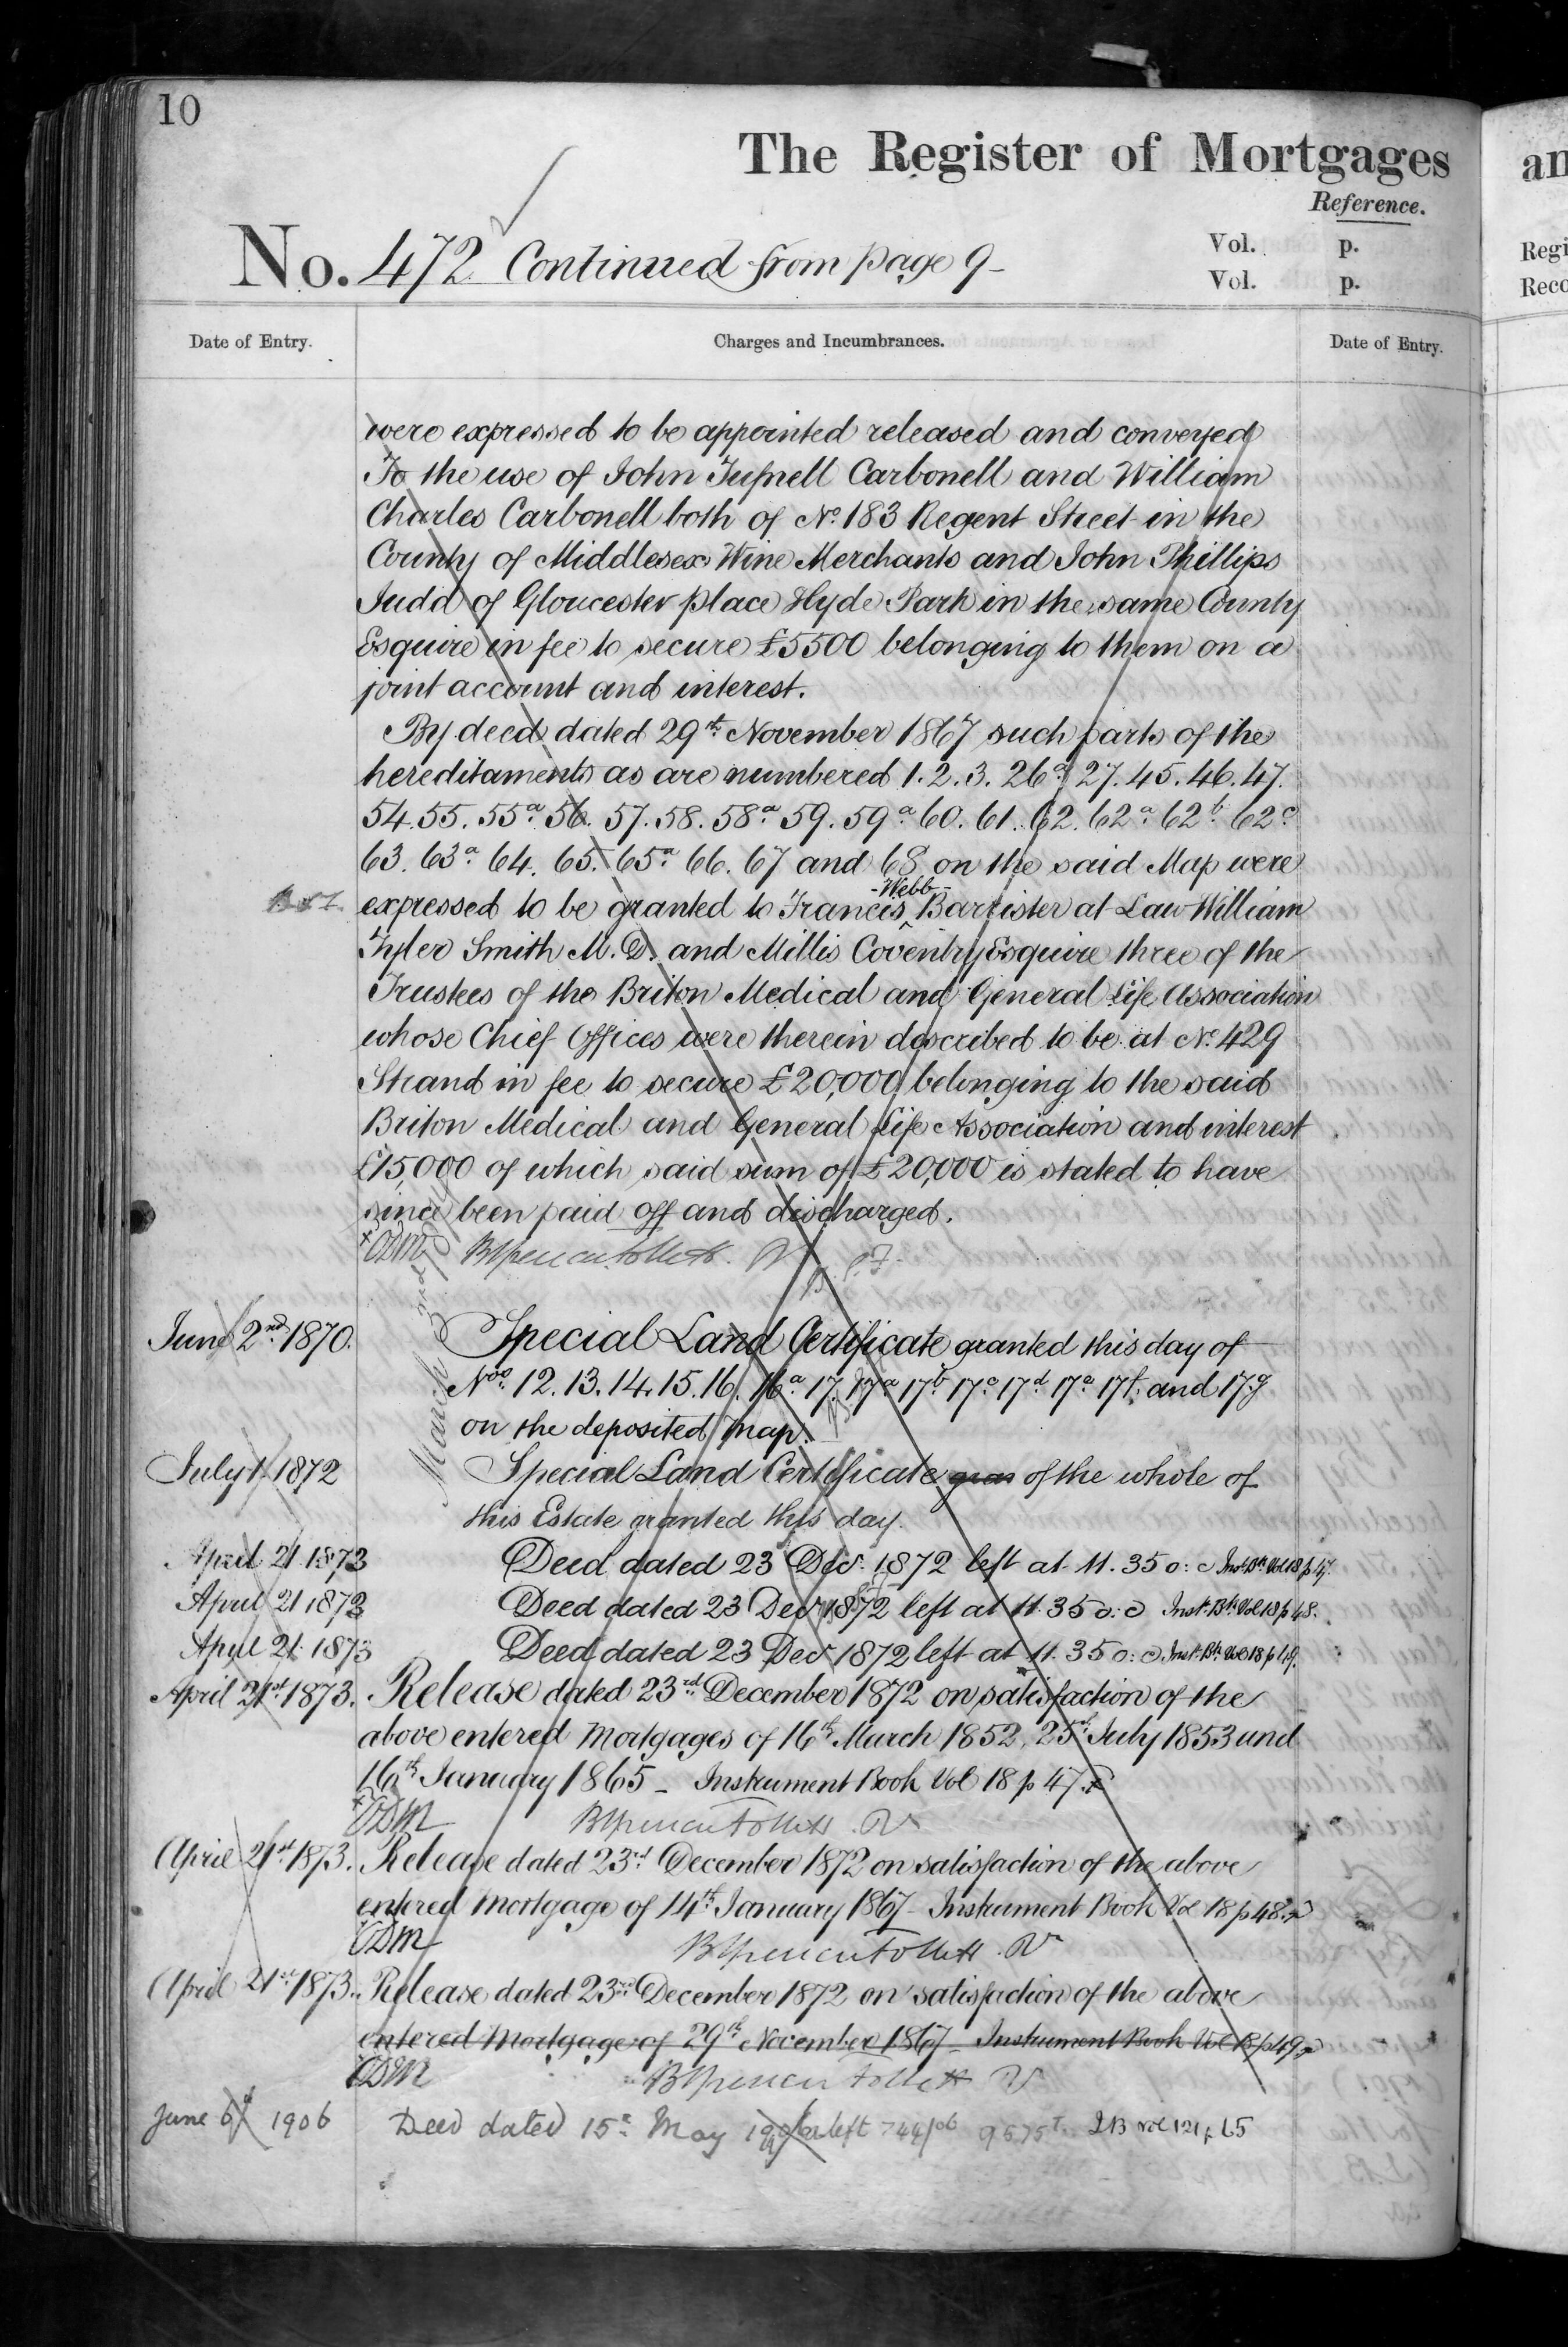 10
The Register of Mortgages
Reference.
No. 472 Continued from page 9
Vol. p.
Vol. p.
Date of Entry.
Charges and Incumbrances.
Date of Entry.
were expressed to be appointed released and conveyed
To the use of John Tufnell Carbonell and William
Charles Carbonell both of No. 183 Regent Street in the
County of Middlesex Wine Merchants and John Phillips
Judd of Gloucester place Hyde Park in the same County
Esquire in fee to secure £5500 belonging to them on a
joint account and interest.
By deed dated 29th November 1867 such parts of the
hereditaments as are numbered 1. 2. 3. 26a 27. 45. 46. 47.
54. 55. 55a 56. 57. 58. 58a 59. 59a 60. 61. 62. 62a 62b 62c
63. 63a 64. 65. 65a 66. 67 and 68 on the said Map were
-Webb-
expressed to be granted to Francis Barrister at Law William
Tyler Smith M.D. and Millis Coventry Esquire three of the
Trustees of the Briton Medical and General Life Association
whose Chief Offices were therein described to be at No. 429
Strand in fee to secure £20,000 belonging to the said
Briton Medical and General Life Association and interest
£15,000 of which said sum of £20,000 is stated to have
since been paid off and discharged.
June 2nd 1870. Special Land Certificate granted this day of
Nos. 12. 13. 14. 15. 16. 16a 17. 17a 17b 17c 17d 17e 17f. and 17g
on the deposited map.
July 1. 1872 Special Land Certificate gran of the whole of
this Estate granted this day.
April 21 1873 Deed dated 23 Dec. 1872 left at 11.35 o:c Inst. Bk. Vol 18 p 47.
April 21 1873 Deed dated 23 Dec 1872 left at 11.35 o:c Inst. Bk. Vol 18 p 48.
April 21. 1873 Deed dated 23 Dec 1872 left at 11.35 o:c Inst. Bk. Vol 18 p 49.
April 21st 1873. Release dated 23rd December 1872 on satisfaction of the
above entered Mortgages of 16th March 1852, 25th July 1853 and
16th January 1865 - Instrument Book Vol 18 p 47.
April 21st 1873. Release dated 23rd December 1872 on satisfaction of the above
entered Mortgage of 14th January 1867 - Instrument Book Vol 18 p 48.
April 21st 1873. Release dated 23rd December 1872 on satisfaction of the above
entered Mortgage of 29th November 1867 - Instrument Book Vol 18 p 49
June 6 1906 Deed dated 15th May 1906 left 744/06 IB vol 121 p 65